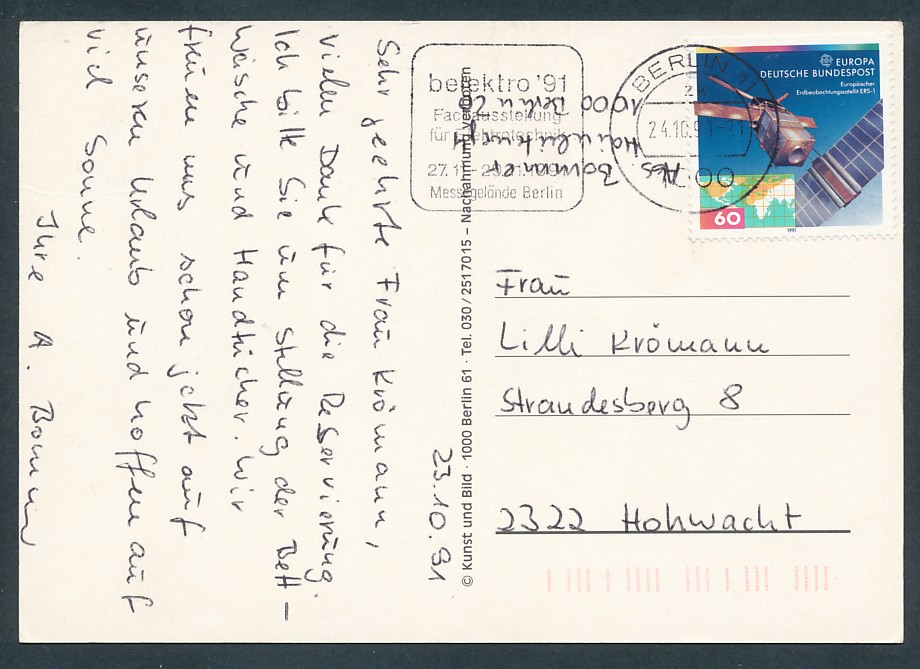 23.10.91
Sehr geehrte Frau Krömann,
vielen Dank für die Reservierung.
Ich bitte Sie um Stellung der Bett-
wäsche und Handtücher. Wir
freuen uns schon jetzt auf
unseren Urlaub und hoffen auf
viel Sonne.
Ihre A.
© Kunst und Bild · 1000 Berlin 61 · Tel. 030 / 2517015 – Nachahmung verboten
belektro '91
Fachausstellung
für Elektrotechnik
27.11 -
Messegelände Berlin
Abs
1000 Berlin 20
BERLIN 11
24.10.91-21
1000
EUROPA
DEUTSCHE BUNDESPOST
Europäischer
Erdbeobachtungssatellit ERS-1
60
1991
Frau
Lilli Krömann
Strandesberg 8
2322 Hohwacht